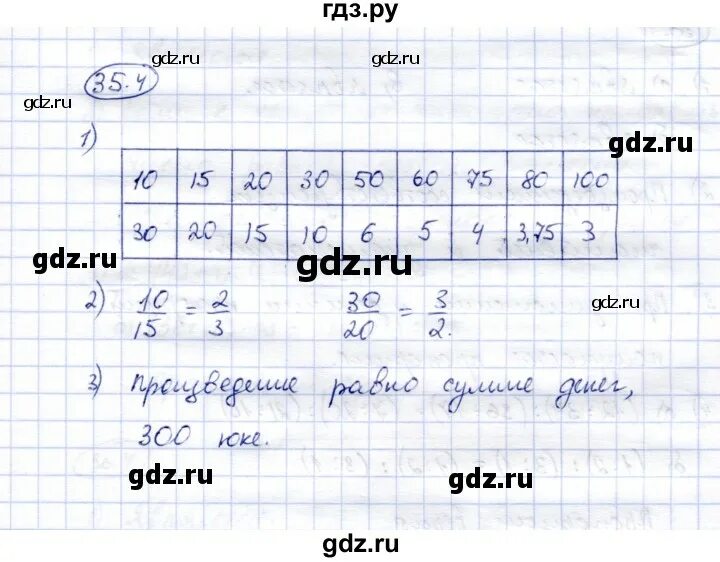 гдз.ру
gdz.ru
gdz.ru
35.4
gdz.ru
1)
gdz.ru
10 15 20 30 50 60 75 80 100
30 20 15 10 6 5 4 3,75 3
gdz.ru
gdz.ru
gdz.ru
2) 10/15 = 2/3 30/20 = 3/2.
gdz.ru
3) Произведение равно сумме денег,
300 юке.
gdz.ru
gdz.ru
gdz.ru